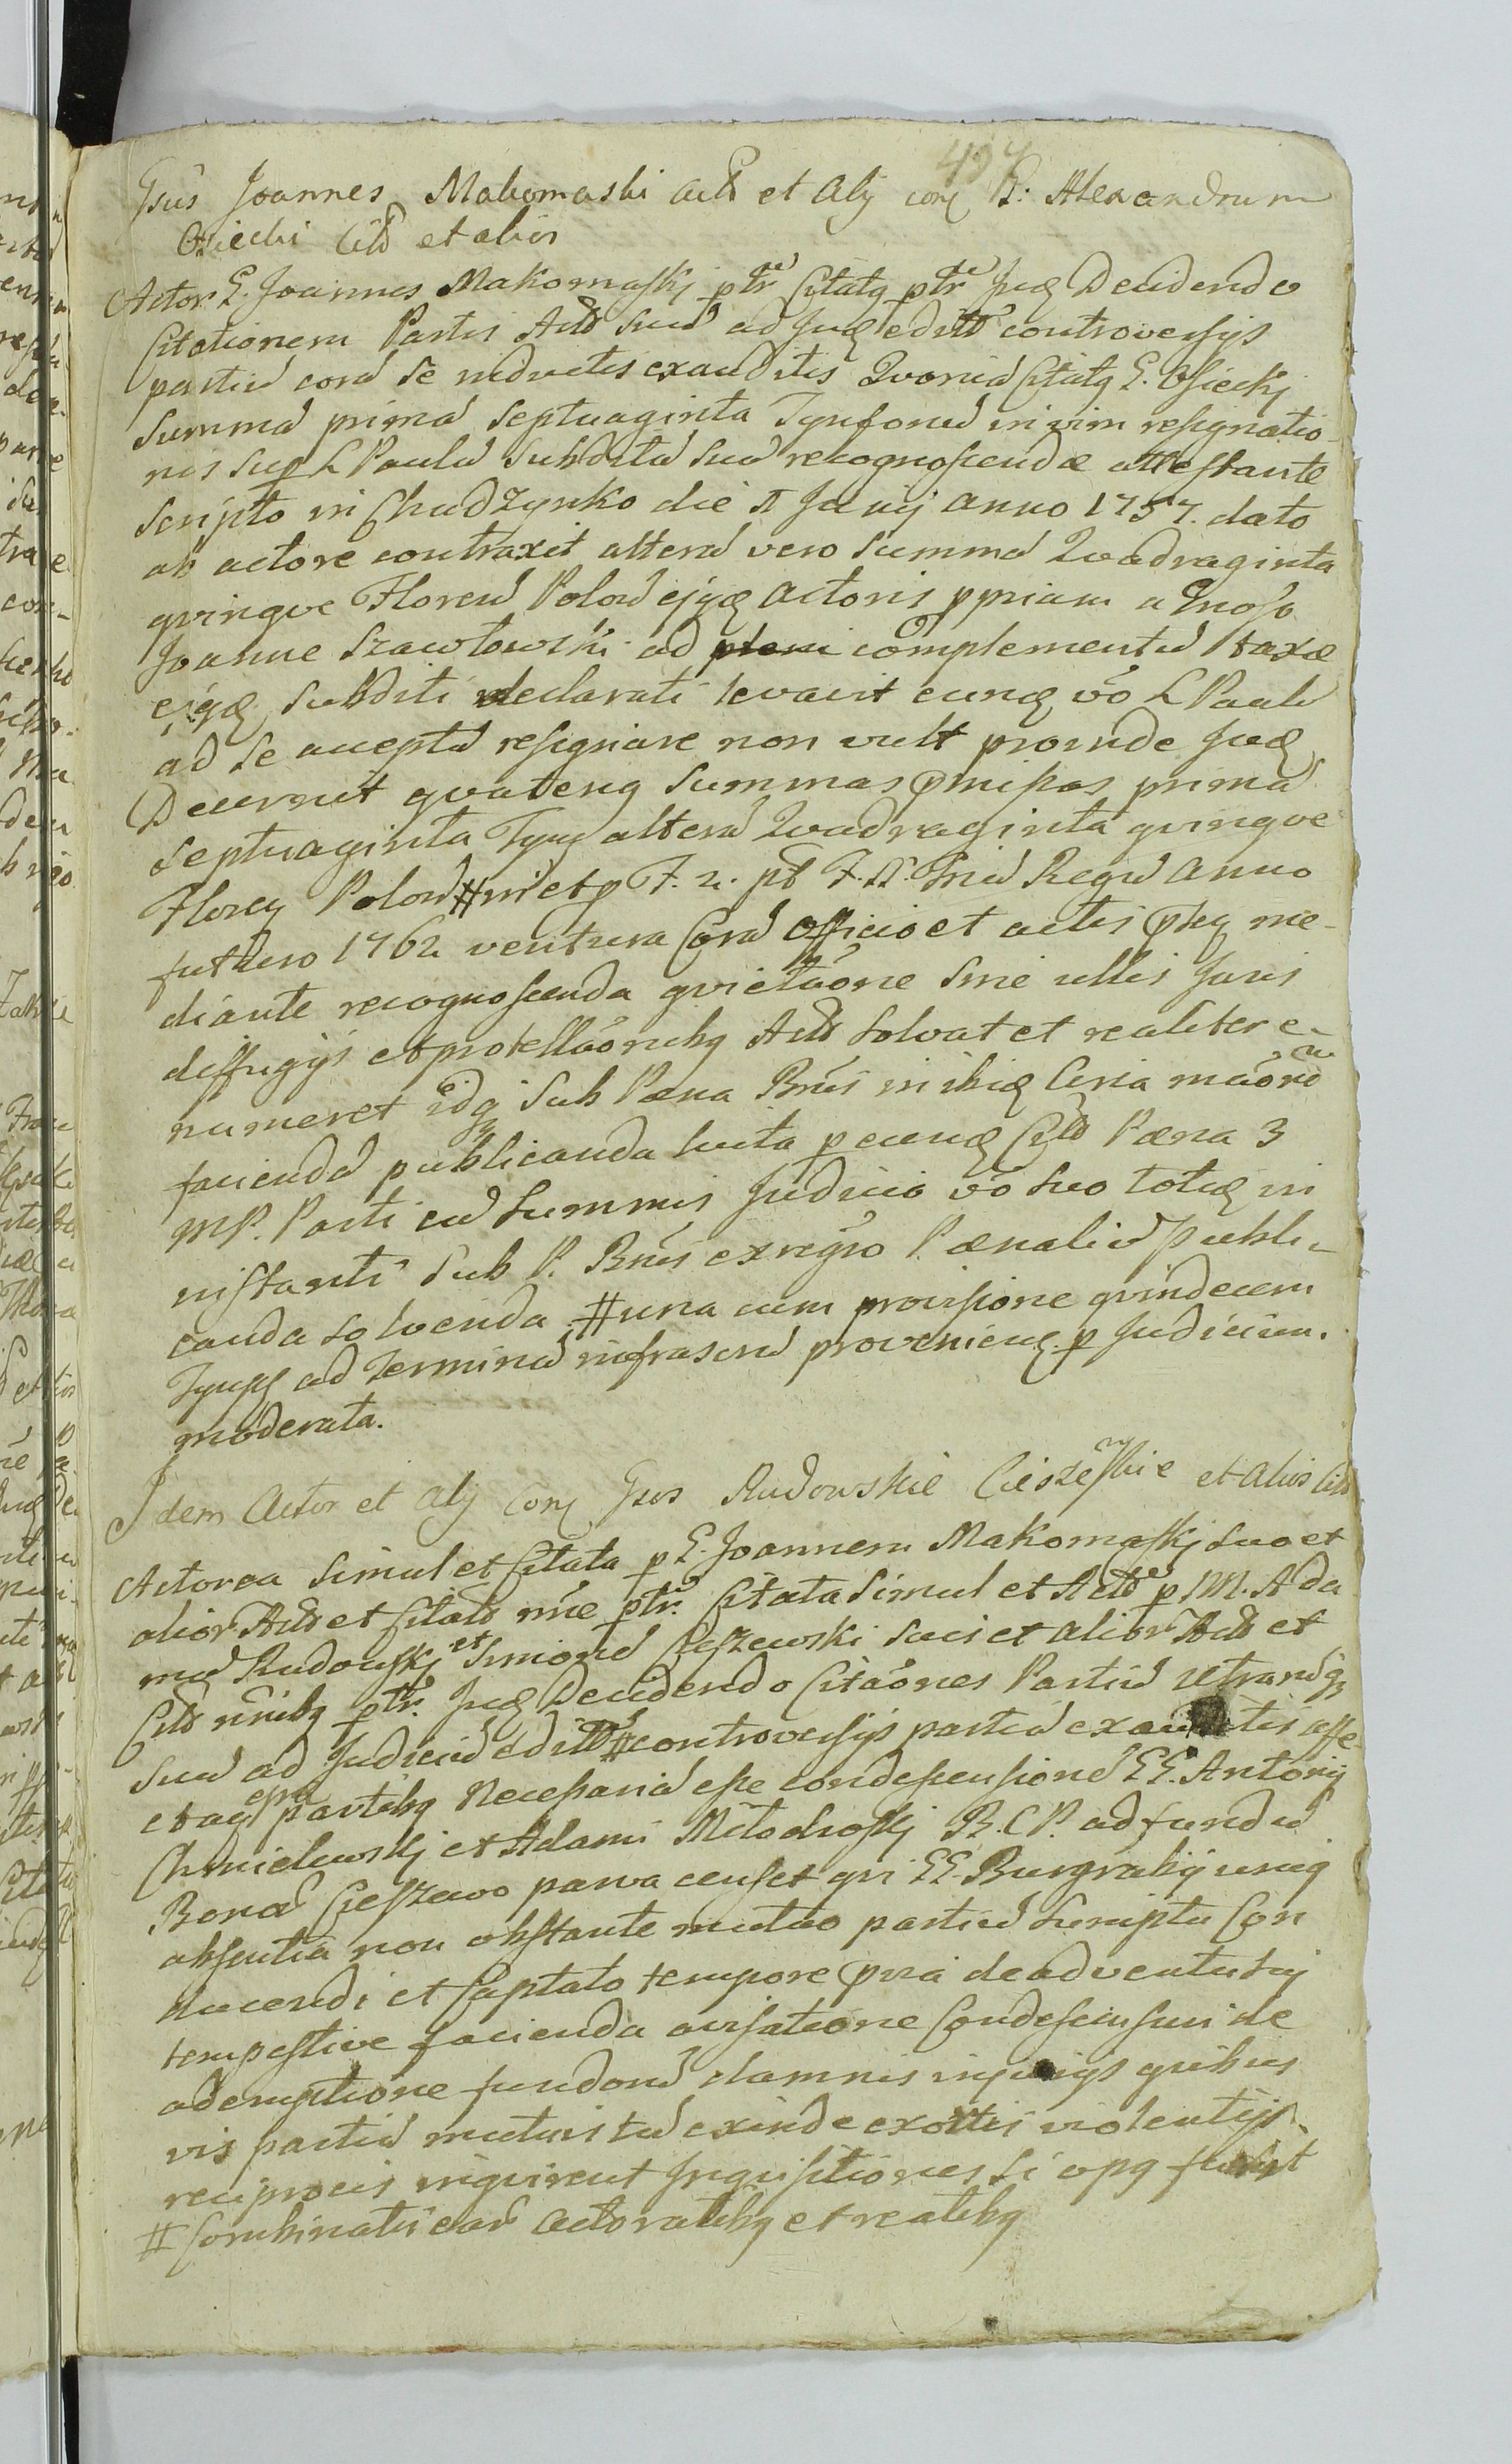 497
Gsus Joannes Makomaski actr et alij con P. Alexandrum
Osiecki Citt et alios
Actor G. Joannes Makomaskj ptr Citatq ptr Juđ Decidendo
Citationem Partis Actr suā ad Juđ editā controversijs
partiū corā se inductis exauditis Qvoniā Citatq G. Osieckj
Summā primā septuaginta Tynfonū in vim resignatio-
nis sup L Paulū subditū suū recognoscendæ attestante
scripto in Chudzynko die 11 Junij anno 1757. dato
ab actore contraxit alterā vero summā Qvadraginta
qvinqve Florenū Polon ejqđ actoris ppriam a Gnoso
Joanne Szawłowski ad complementū taxæ
ejqđ subditi declarati levavit eunđ vō L Paulū
ad se acceptū resignare non vult proinde Juđ
Decernit qvatenq summas pmissas primā
septuaginta Tynf alterā Qvadraginta qvinqve
Floren Polon # in et p F. 2. pt F. S. Triū Regū anno
futuro 1762 ventura Corā officio et actis pntq me-
diante recognoscenda qvietāone sine ullis Juris
diffugijs et protellāonibq Actr solvat et realiter e-
numeret idq sub Pæna Bnis in ibiđ Cnia māone
facienda publicanda luita p eunđ Citt Pæna 3
MP. Parti cū summis Judicio vō suo totiđ in
instanti sub P. Bnis ex regro Pænaliū publi-
canda solvenda # una cum provisione qvindecem
Tynff ad Terminū infrascrū provenien p Judicium.
moderata.
Idem Actor et alij con Gsos Rudowskie Cieszewskie et alios Citt
Actorea simul et Citata p G. Joannem Makomaskj suo et
alior Actr et Citatt nnie ptr. Citata simul et Actr p M. Ada
mū Rudowskj et Simonē Cieszewski suis et alior Actr et
Citt nnibq ptr. Juđ Decidendo Citāones Partiū utranq
suū ad Judiciū editt # controversijs partiū exauditis affe
ctaq pptr partibq Necessariā esse condescensionē GG. Antonij
Chmielewskj et Adami Młodroskj B.C.P. ad fundū
Bonor Cieszewo parva censet qvi GG. Burgrabij uniq
absentia non obstante mutuo partiū sumptu Con
ducendi et Captato tempore pvia de adventu suj
tempestive facienda avisatione Condescensuri de
ademptione fundorū damnis injurijs qvibus
vis partiū mutuis tū exinde exortis violentijs
reciprocis inqvirent Inqvisitiones si opq fuerit
# Combinatis ear actoratibq et reatibq